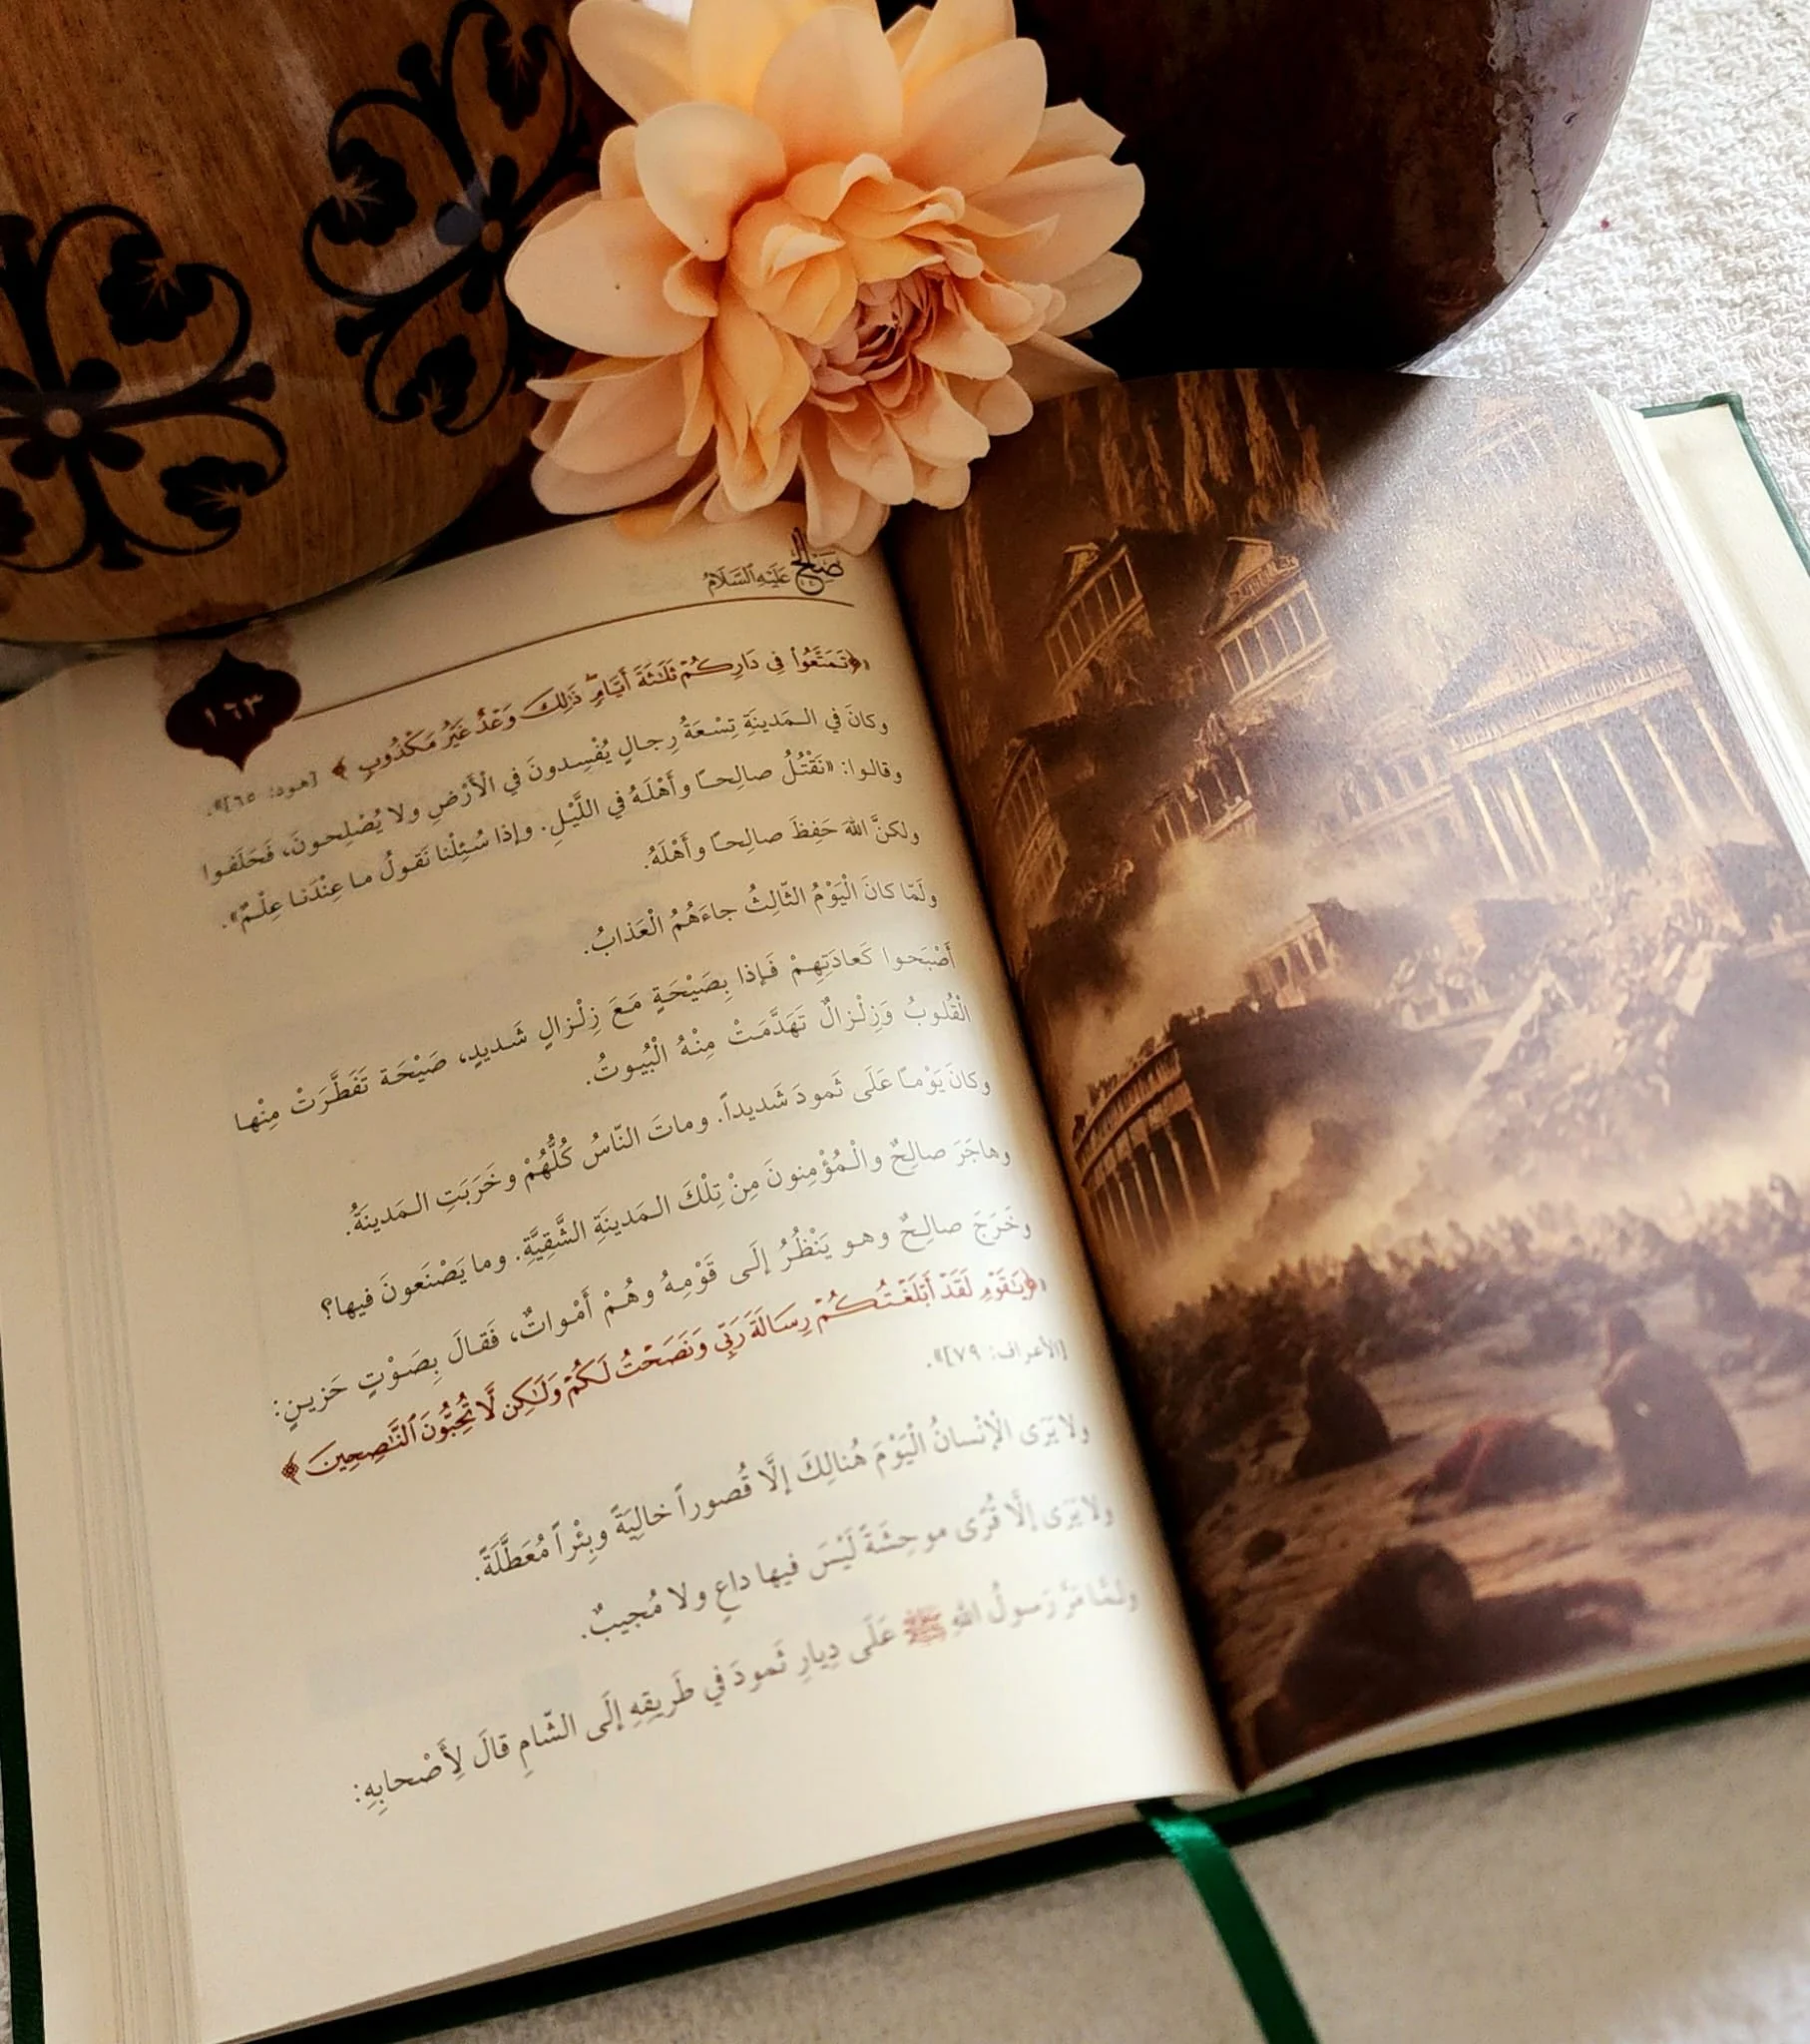 صَالِح عَلَيْهِ ٱلسَّلَامُ
١٦٣
«﴿تَمَتَّعُوا۟ فِي دَارِكُمْ ثَلَٰثَةَ أَيَّامٍۖ ذَٰلِكَ وَعْدٌ غَيْرُ مَكْذُوبٍ﴾ [هود: ٦٥]».
وكانَ في الـمَدينَةِ تِسْعَةُ رِجـالٍ يُفْسِـدونَ في الْأَرْضِ ولا يُصْلِحـونَ، فَحَلَفـوا
وقالـوا: «نَقْتُـلُ صالِحـًا وأَهْلَـهُ في اللَّيْلِ. وإذا سُـئِلْنا نَقـولُ مـا عِنْدَنـا عِلْـمٌ».
ولكنَّ اللهَ حَفِظَ صالِحـًا وأَهْلَهُ.
ولَمّا كانَ الْيَوْمُ الثّالِثُ جاءَهُمُ الْعَذابُ.
أَصْبَحـوا كَعادَتِهِـمْ فَـإذا بِصَيْحَـةٍ مَـعَ زِلْـزالٍ شَـديدٍ، صَيْحَـة تَفَطَّـرَتْ مِنْهـا
الْقُلـوبُ وَزِلْـزالٌ تَهَدَّمَـتْ مِنْـهُ الْبُيـوتُ.
وكانَ يَوْمـًا عَلَى ثَمودَ شَديداً. وماتَ النّاسُ كُلُّهُمْ وخَرَبَتِ الـمَدينَةُ.
وهاجَرَ صالِحٌ والْـمُؤْمِنونَ مِنْ تِلْكَ الـمَدينَةِ الشَّقِيَّةِ. وما يَصْنَعونَ فيها؟
وخَـرَجَ صالِـحٌ وهـو يَنْظُـرُ إلَـى قَوْمِـهُ وهُـمْ أَمْـواتٌ، فَقـالَ بِصَـوْتٍ حَزيـنٍ:
«﴿يَٰقَوْمِ لَقَدْ أَبْلَغْتُكُمْ رِسَالَةَ رَبِّي وَنَصَحْتُ لَكُمْ وَلَٰكِن لَّا تُحِبُّونَ ٱلنَّٰصِحِينَ﴾
[الأعراف: ٧٩]».
ولا يَرَى الْإنْسانُ الْيَوْمَ هُنالِكَ إلَّا قُصوراً خالِيَةً وبِئْراً مُعَطَّلَةً.
ولا يَرَى إلَّا قُرًى موحِشَةً لَيْسَ فيها داعٍ ولا مُجيبٌ.
ولمّا مَرَّ رَسولُ اللهِ ﷺ عَلَى دِيارِ ثَمودَ في طَريقِهِ إلَى الشّامِ قالَ لِأَصْحابِهِ: